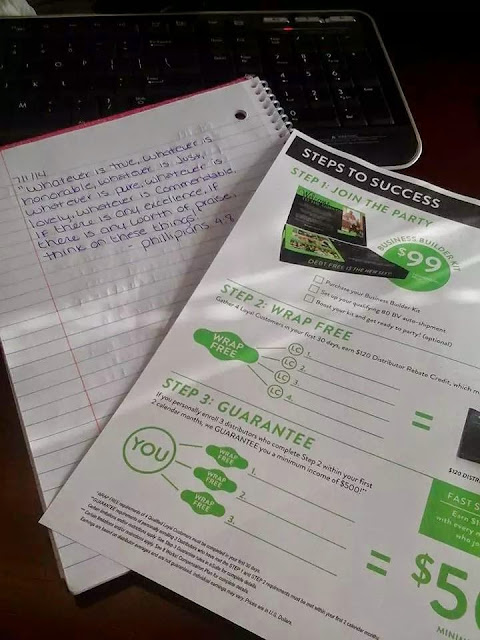 7/1/14
"Whatever is true, whatever is
honorable, whatever is just,
whatever is pure, whatever is
lovely, whatever is commendable,
if there is any excellence, if
there is any worth of praise,
think on these things"
philippians 4:8
STEPS TO SUCCESS
STEP 1: JOIN THE PARTY
DEBT FREE IS THE NEW SEXY
BUSINESS BUILDER KIT
$99
Purchase your Business Builder Kit
Set up your qualifying 80 BV auto-shipment
Boost your kit and get ready to party! (optional)
STEP 2: WRAP FREE
Gather 4 Loyal Customers in your first 30 days, earn $120 Distributor Rebate Credit, which m
WRAP
FREE
LC 1.
LC 2.
LC 3.
LC 4.
=
$120 DISTR
STEP 3: GUARANTEE
If you personally enroll 3 distributors who complete Step 2 within your first
2 calendar months, we GUARANTEE you a minimum income of $500!**
YOU
WRAP
FREE
1.
WRAP
FREE
2.
WRAP
FREE
3.
=
FAST S
Earn $1
with every n
who jo
$50
MINIM
*WRAP FREE requirements of 4 Qualified Loyal Customers must be completed in your first 30 days.
Earnings are based on distributor averages and are not guaranteed. Individual earnings may vary. Prices are in U.S. Dollars.